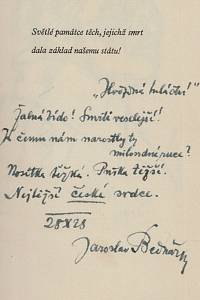 Světlé památce těch, jejichž smrt
dala základ našemu státu!
"Hvězdné mládí!"
Žalná Smrti veselejší!
K čemu nám narostly ty
milondné ruce?
Nosítka těžká. Puška těžší.
Nejtěžší české srdce.
28 X 28
Jaroslav Bednář